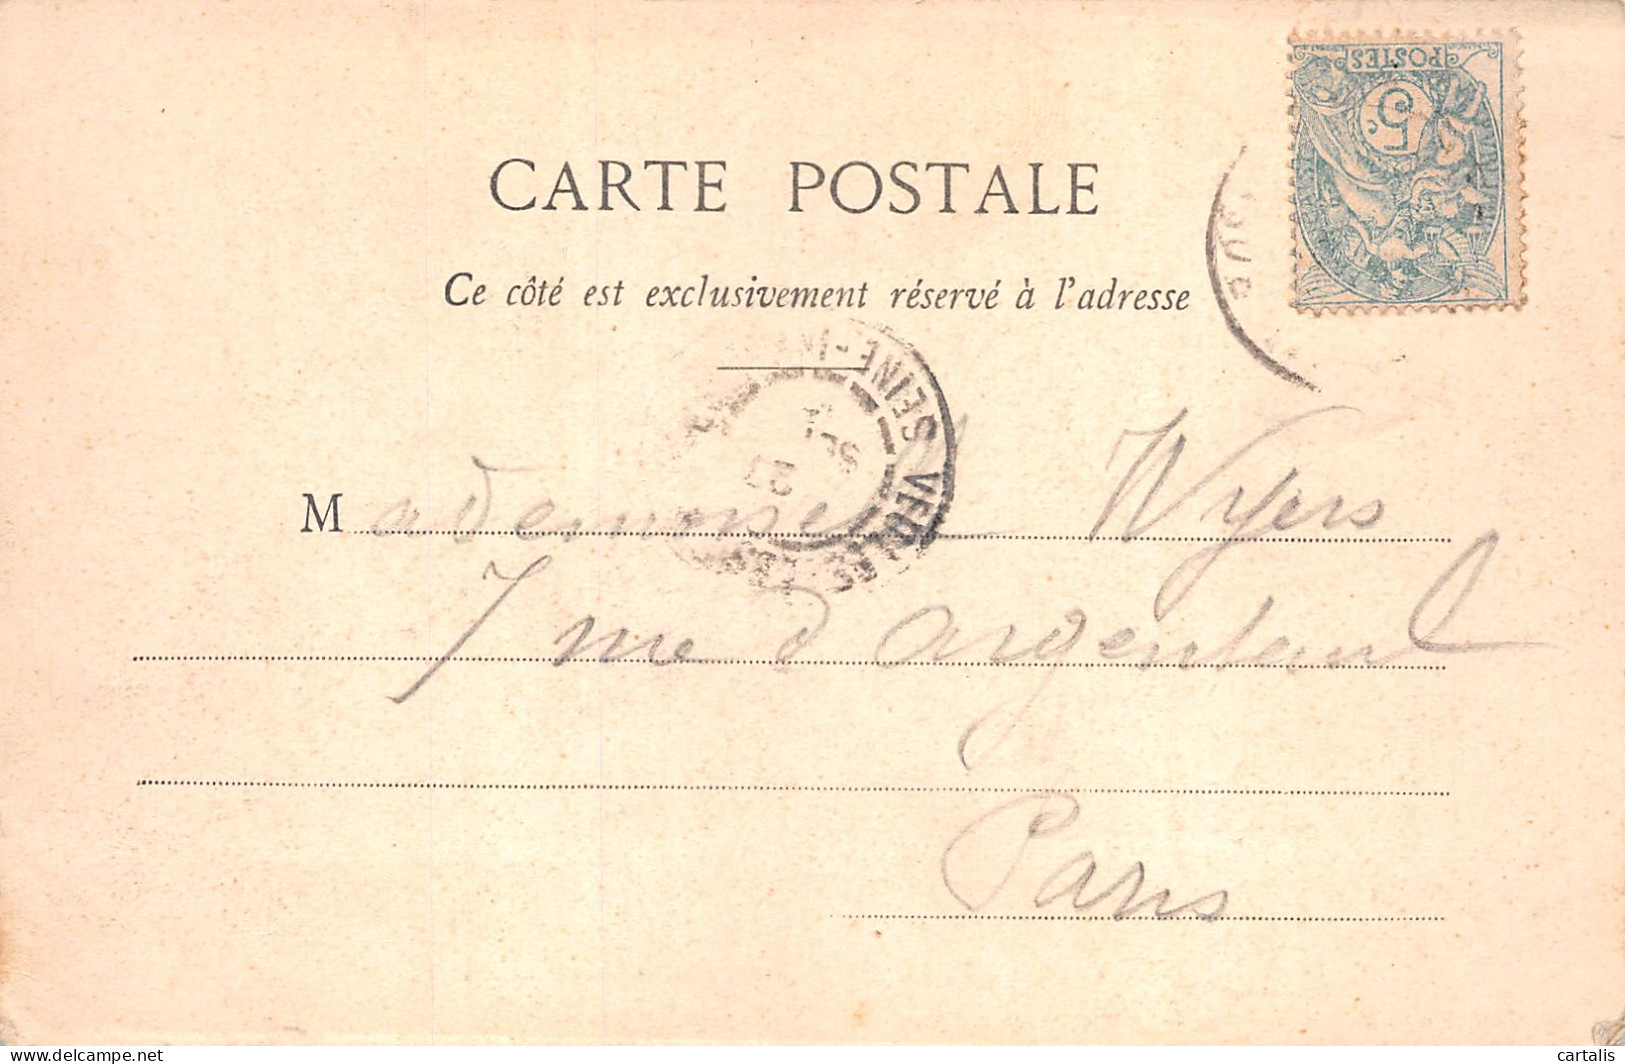 POSTES
5c
CARTE POSTALE
Ce côté est exclusivement réservé à l'adresse
SEINE-IN
SEPT
27
Mademoiselle Wyers
7 rue d'Argenteuil
Paris
delcampe.net
cartalis